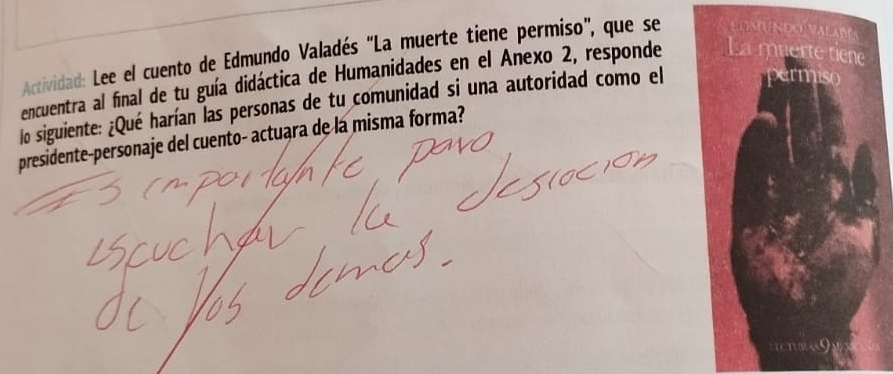 Actividad: Lee el cuento de Edmundo Valadés "La muerte tiene permiso", que se
encuentra al final de tu guía didáctica de Humanidades en el Anexo 2, responde
lo siguiente: ¿Qué harían las personas de tu comunidad si una autoridad como el
presidente-personaje del cuento- actuara de la misma forma?
Es importante para
escuchar la desicocion
de los demas.
EDMUNDO VALADÉS
La muerte tiene
permiso
LECTURAS 9 MEXICANAS